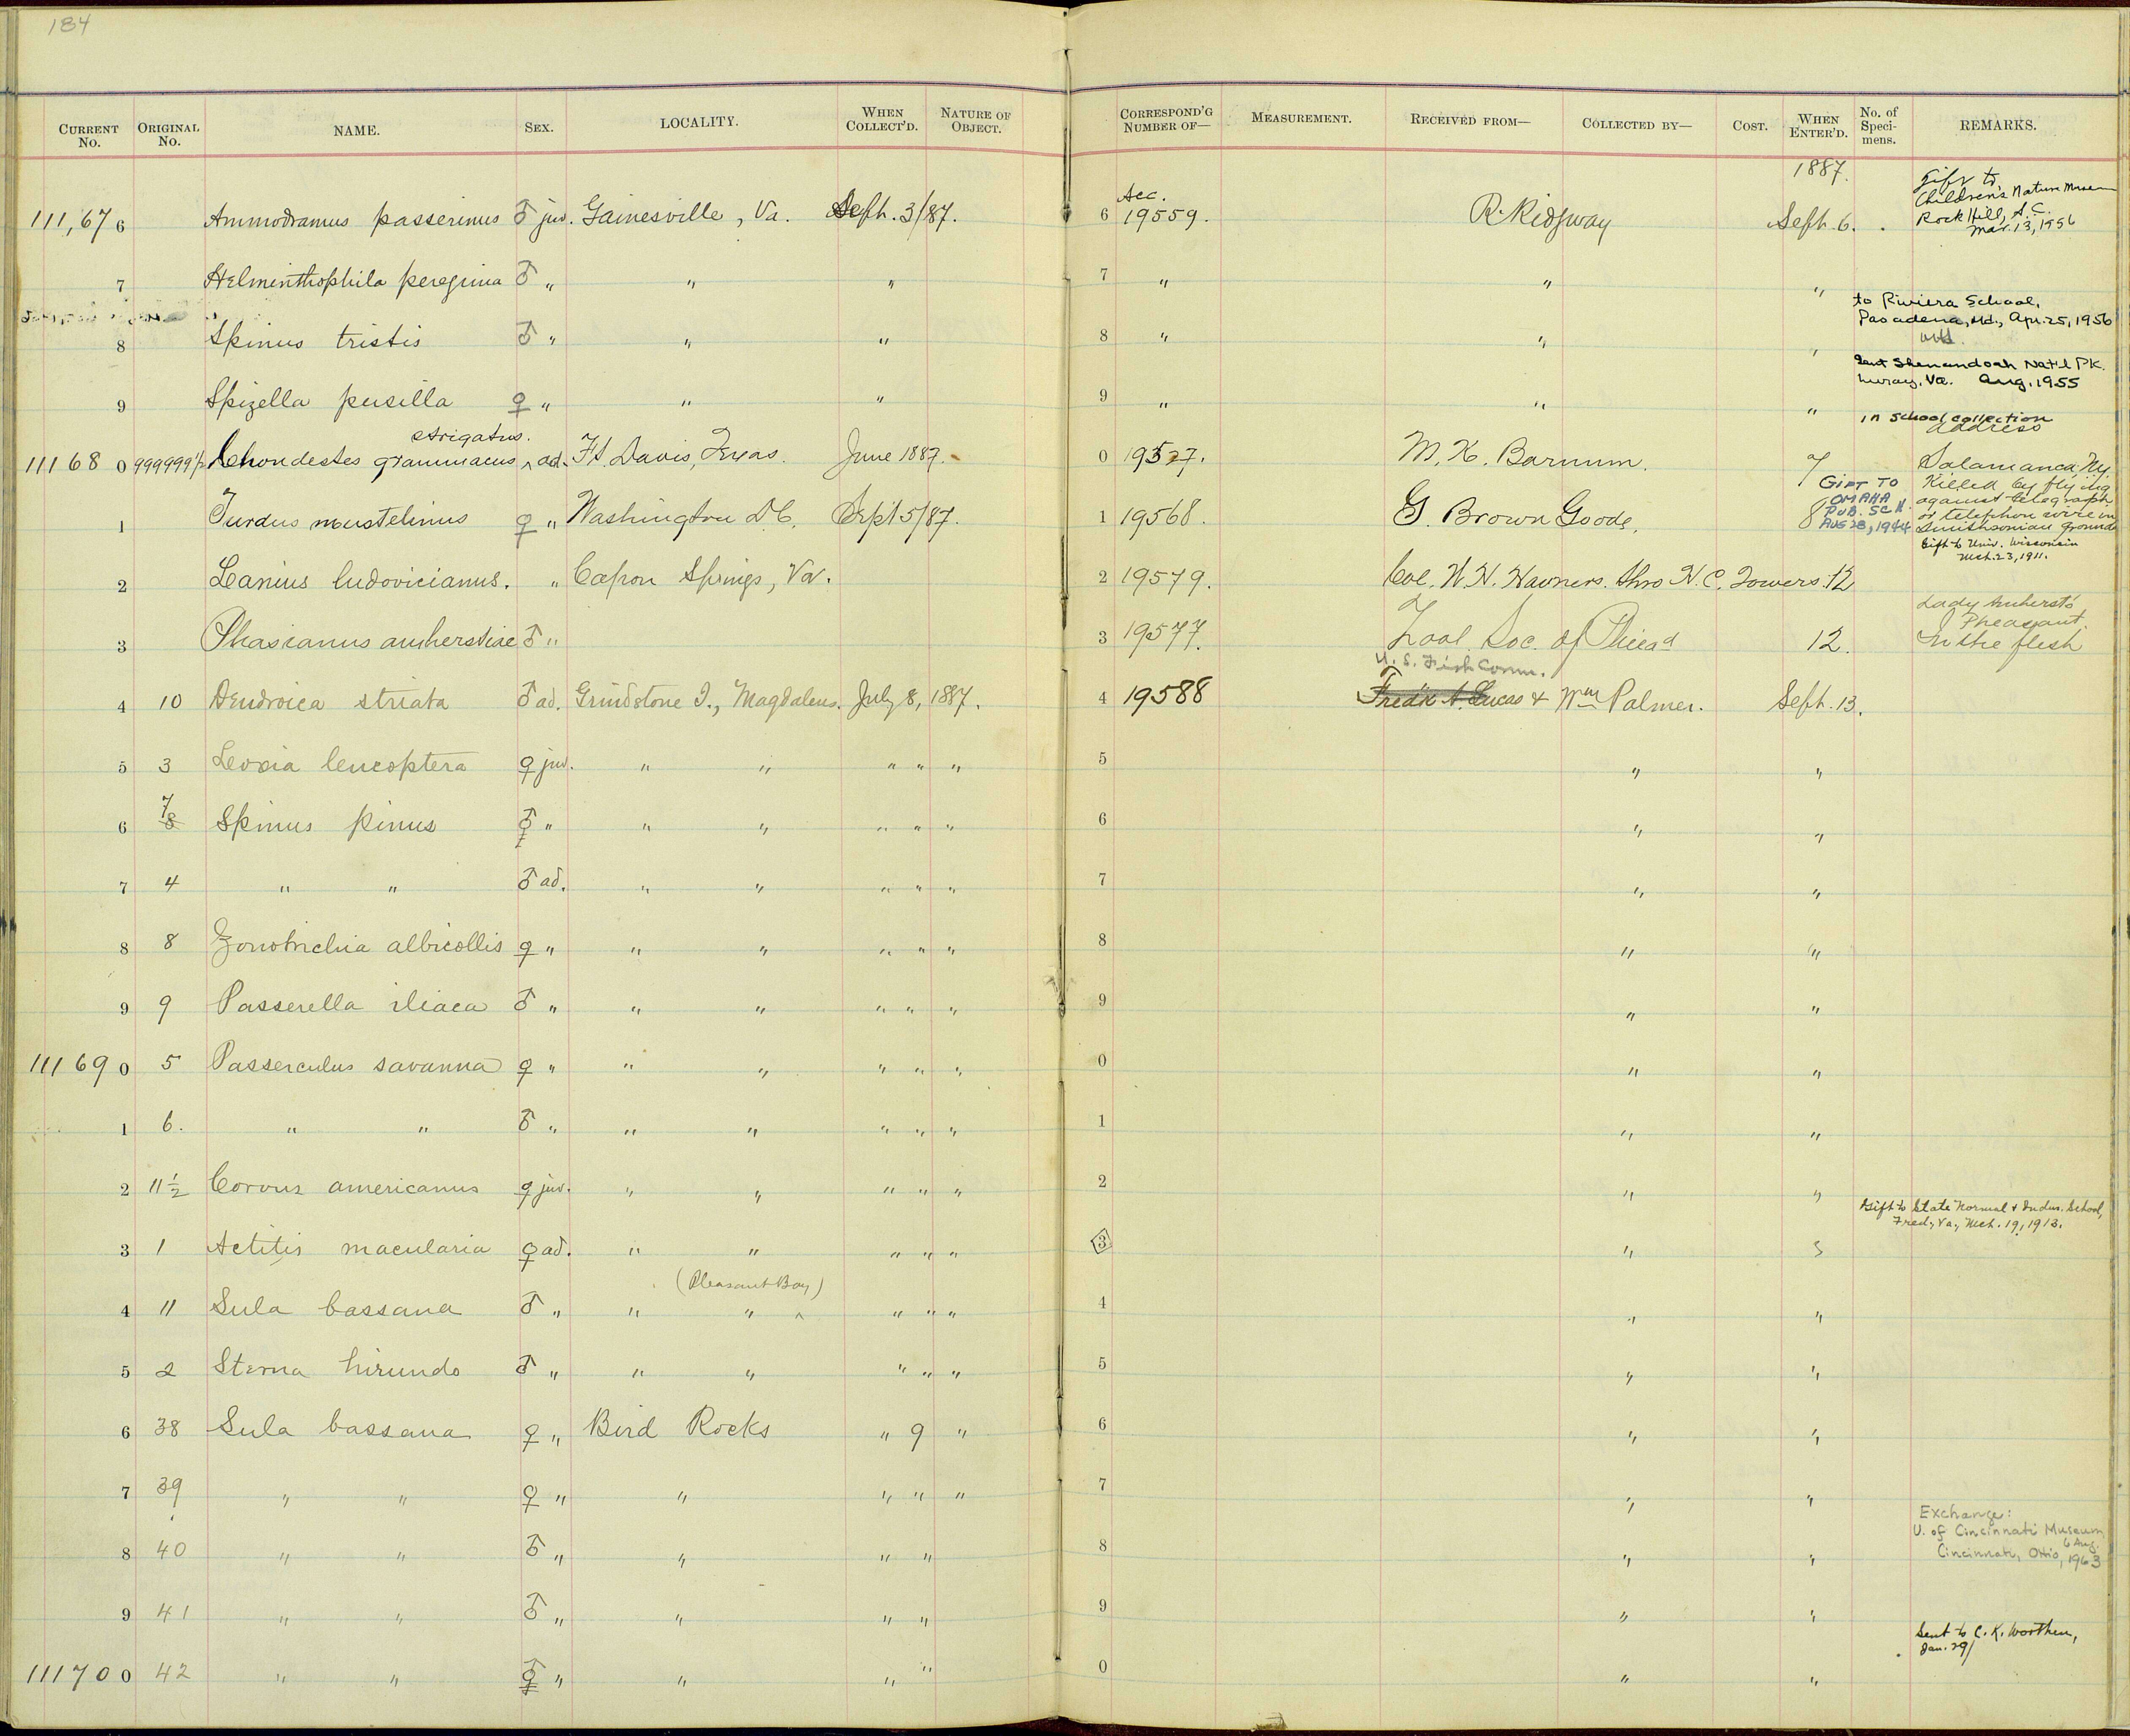 184
CURRENT No. ORIGINAL No. NAME. SEX. LOCALITY. WHEN COLLECT'D. NATURE OF OBJECT. CORRESPOND'G NUMBER OF— MEASUREMENT. RECEIVED FROM— COLLECTED BY— COST. WHEN ENTER'D. No. of Speci-mens. REMARKS.
1887.
Gift to
Children's Nature Museum
Rock Hill, S.C.
Mar. 13, 1956
111,67 6 Ammodramus passerinus ♂ juv. Gainesville, Va. Sept. 3/87. 6 Acc. 19559. R. Ridgway Sept. 6.
7 Helminthophila peregrina ♂ " " " 7 " " "
to Riviera School,
Pasadena, Md., Apr. 25, 1956
8 Spinus tristis ♂ " " " 8 " " "
Sent Shenandoah Nat'l PK.
Luray, Va. Aug. 1955
9 Spizella pusilla ♀ " " " 9 " " "
in school collection
strigatus.
address
11168 0 Chondestes grammacus ^ ad. Ft. Davis, Texas. June 1887. 0 19527. M. K. Barnum. 7 Salamanca Ny.
1 Turdus mustelinus ♀ " Washington D.C. Sept 5/87. 1 19568. G. Brown Goode. 8
GIFT TO
OMAHA
PUB. SCH.
AUG 28, 1944
Killed by flying
against telegraph
or telephone wire in
Smithsonian grounds
Gift to Univ. Wisconsin
Mch. 23, 1911.
2 Lanius ludovicianus. " Capon Springs, Va. 2 19579. Col. W. H. thro H. C. Towers. 12
3 Phasianus amherstiae ♂ " 3 19577. Zool. Soc. of Philad 12.
Lady Amherst's
Pheasant.
In the flesh
U. S. Fish Comm.
4 10 Dendroica striata ♂ ad. Grindstone I., Magdalens. July 8, 1887. 4 19588 Fredk A. Lucas & Wm Palmer. Sept. 13.
5 3 Loxia leucoptera ♀ juv. " " " " " 5 " "
6 7 8 Spinus pinus ♂♀ " " " " " " 6 " "
7 4 " " ♂ ad. " " " " " 7 " "
8 8 Zonotrichia albicollis ♀ " " " " " " 8 " "
9 9 Passerella iliaca ♂ " " " " " " 9 " "
11169 0 5 Passerculus savanna ♀ " " " " " " 0 " "
1 6. " " ♂ " " " " " " 1 " "
2 11½ Corvus americanus ♀ juv. " " " " " 2 " "
Gift to State Normal & Indus. School,
Fred, Va., Mch. 19, 1913.
3 1 Actitis macularia ♀ ad. " " " " " 3 " "
(Pleasant Bay)
4 11 Sula bassana ♂ " " " ^ " " " 4 " "
5 2 Sterna hirundo ♂ " " " " " " 5 " "
6 38 Sula bassana ♀ " Bird Rocks " 9 " 6 " "
7 39 " " ♀ " " " " " 7 " "
Exchange:
U. of Cincinnati Museum
Cincinnati, Ohio, 6 Aug. 1963
8 40 " " ♂ " " " " 8 " "
9 41 " " ♂ " " " " 9 " "
Sent to C. K. Worthen,
Jan. 29/
11170 0 42 " " ♂♀ " " " " 0 " "